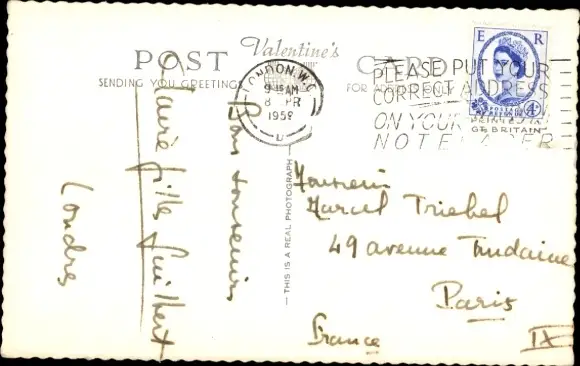 POST Valentine's CARD
SENDING YOU GREETINGS
FOR ADDRESS ONLY
LONDON W.C.
9 15 AM
8 APR
1958
PLEASE PUT YOUR
CORRECT ADDRESS
ON YOUR
NOTEPAPER
E R
POSTAGE REVENUE
4D
PRINTED IN
GT BRITAIN
THIS IS A REAL PHOTOGRAPH
Bons souvenirs
Londres
Monsieur
Marcel Triebel
49 avenue Trudaine
Paris
France IX